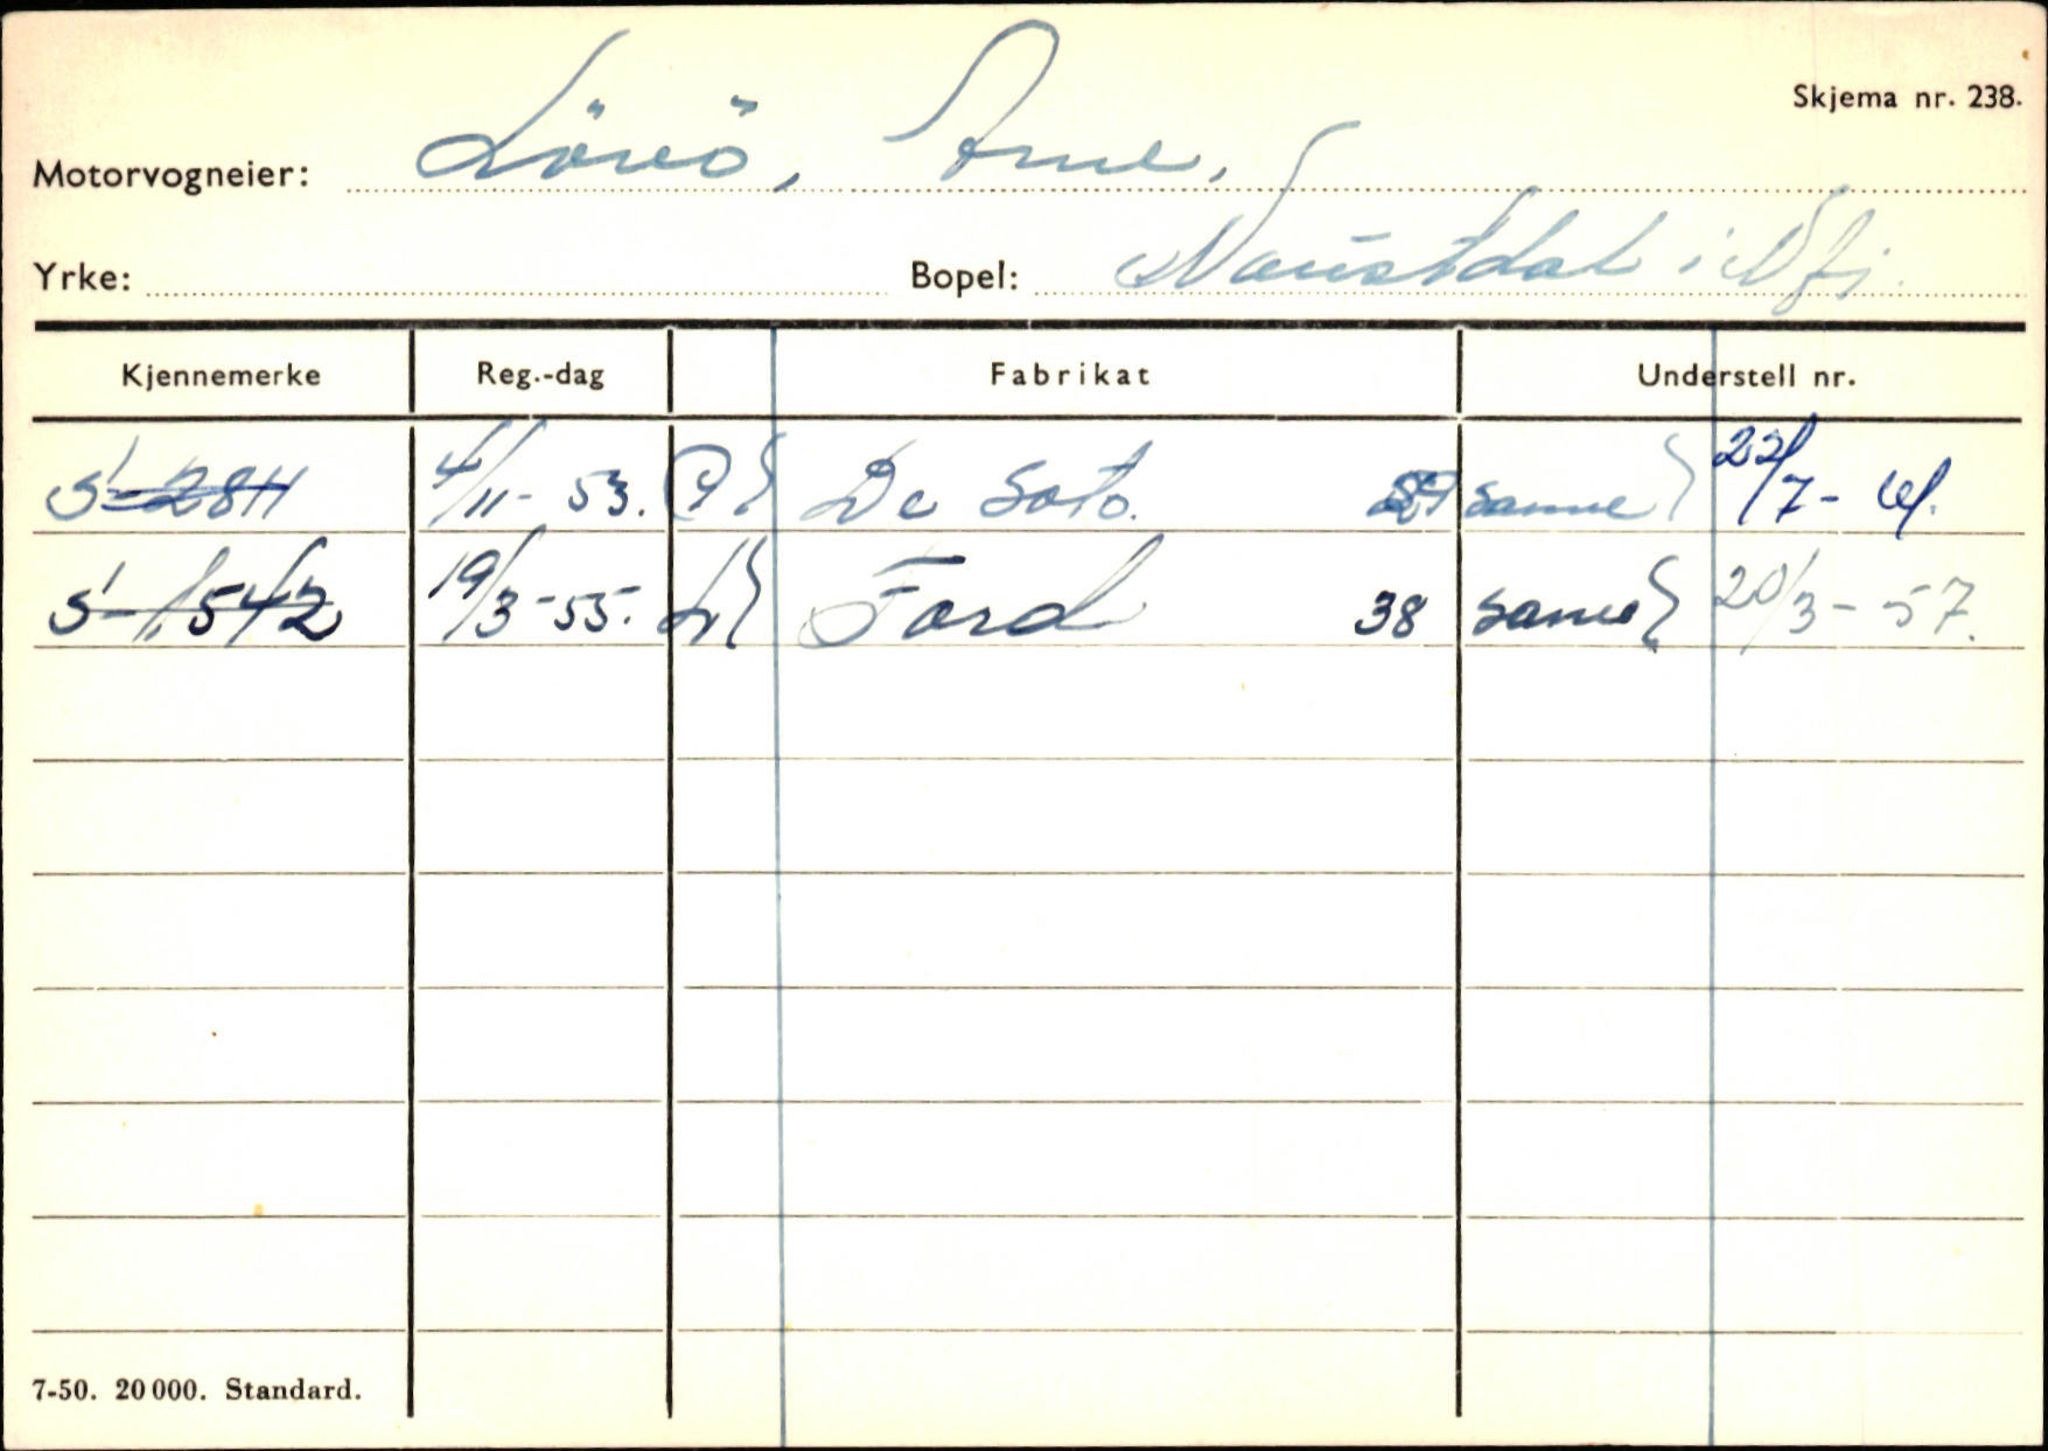 Skjema nr. 238.
Motorvogneier: Lövö, Arne.
Yrke: Bopel: Naustdal i Nfj.
Kjennemerke Reg.-dag Fabrikat Understell nr.
S-2811 4/11-53. P} De Soto. 29 samme} 22/7-61.
S-1542 19/3-55. L} Ford 38 samme} 20/3-57.
7-50. 20 000. Standard.